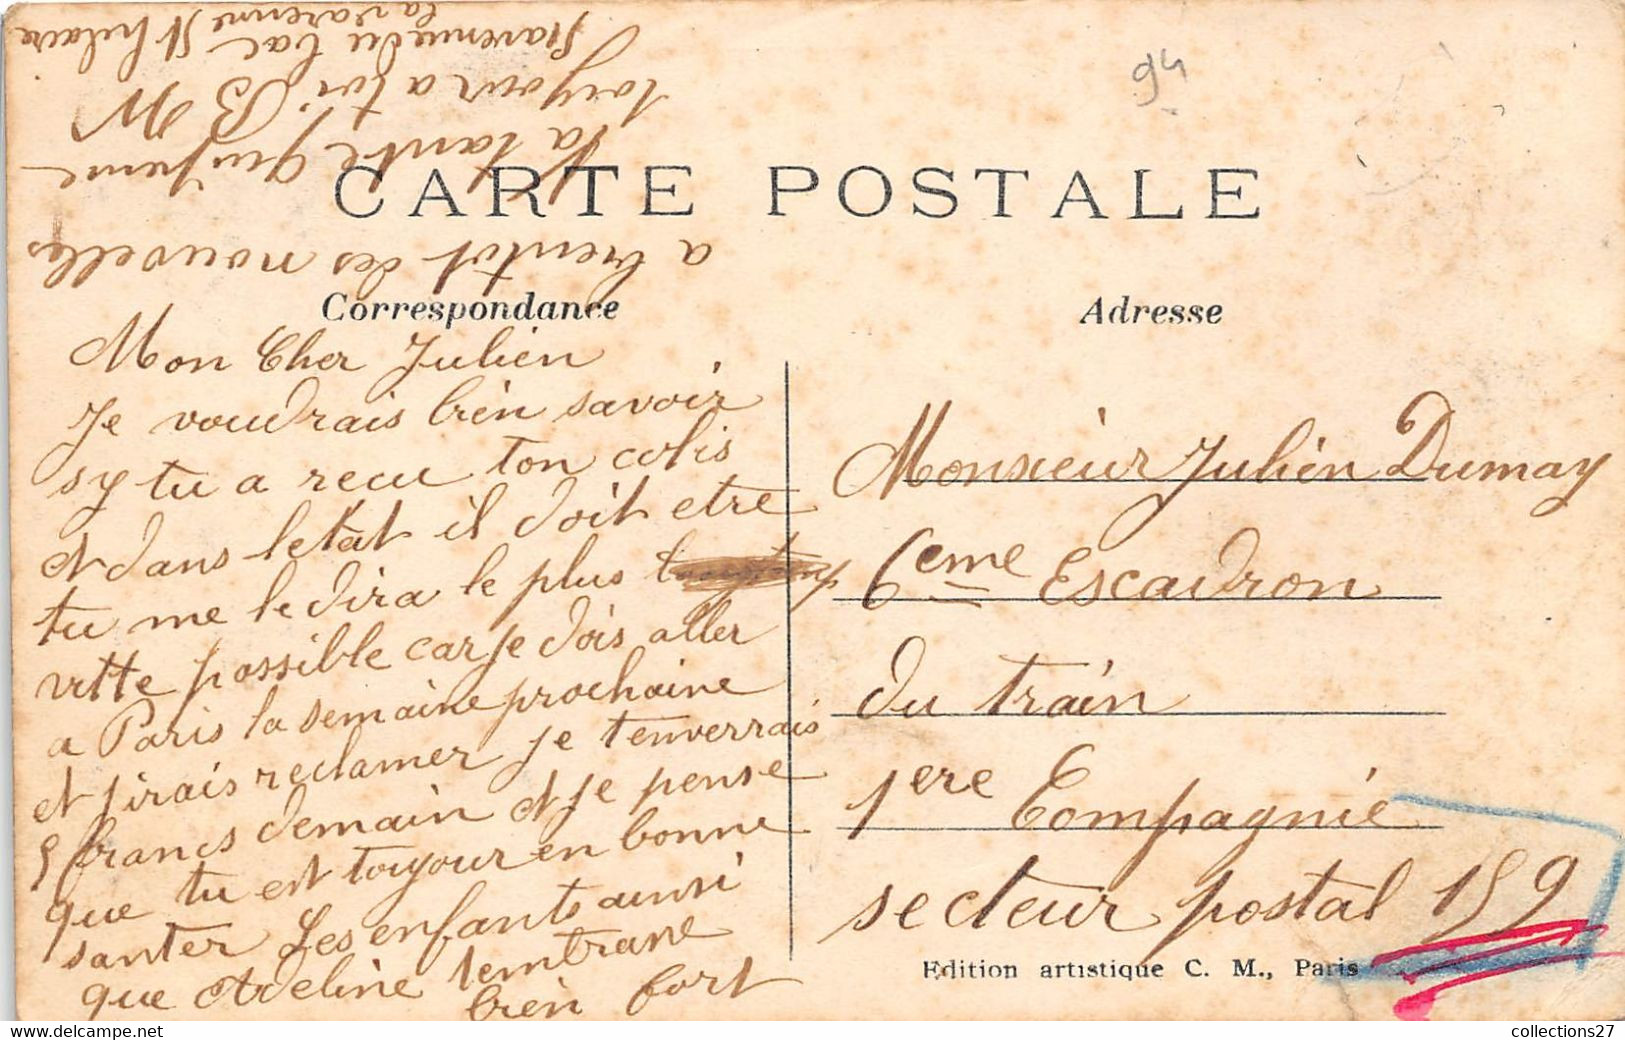 94
CARTE POSTALE
Correspondance
Mon Cher Julien
Je voudrais bien savoir
sy tu a recu ton colis
et dans letat il doit etre
tu me le dira le plus
vitte possible car je dois aller
a Paris la semaine prochaine
et jirais reclamer je tenverrais
5 francs demain et je pense
que tu est toujour en bonne
santer Les enfants ainsi
que Adeline tembrane
bien fort
a bientot des nouvelles
ta tante qui
toujour a toi B M
avenue du bac St hilaire
la varenne
Adresse
Monsieur Julien Dumay
6eme Escadron
du train
1ere Compagnie
secteur postal 159
Edition artistique C. M., Paris
collections27